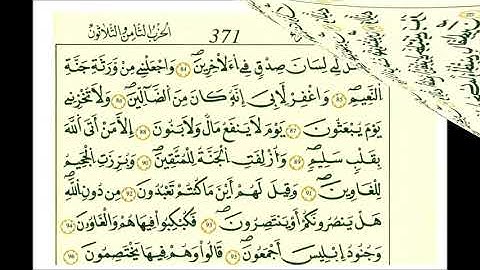 371 الحزب الثامن والثلاثون
لي لسان صدق في الاخرين 84 واجعلني من ورثة جنة
النعيم 85 واغفر لأبي إنه كان من الضالين 86 ولا تخزني
يوم يبعثون 87 يوم لا ينفع مال ولا بنون 88 إلا من أتى الله
بقلب سليم 89 وأزلفت الجنة للمتقين 90 وبرزت الجحيم
للغاوين 91 وقيل لهم أين ما كنتم تعبدون 92 من دون الله
هل ينصرونكم أو ينتصرون 93 فكبكبوا فيها هم والغاوون 94
وجنود إبليس أجمعون 95 قالوا وهم فيها يختصمون 96